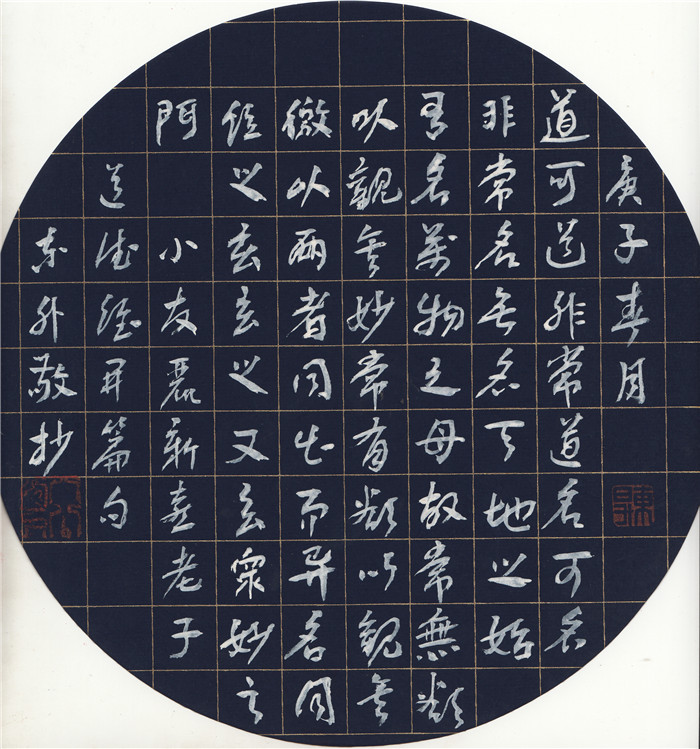 庚子春月
道可道非常道名可名
非常名无名天地之始
有名萬物之母故常無欲
以觀其妙常有欲以觀其
徼此兩者同出而异名同
謂之玄玄之又玄眾妙之
門 小友麗新喜老子
道德經开篇句
敬抄